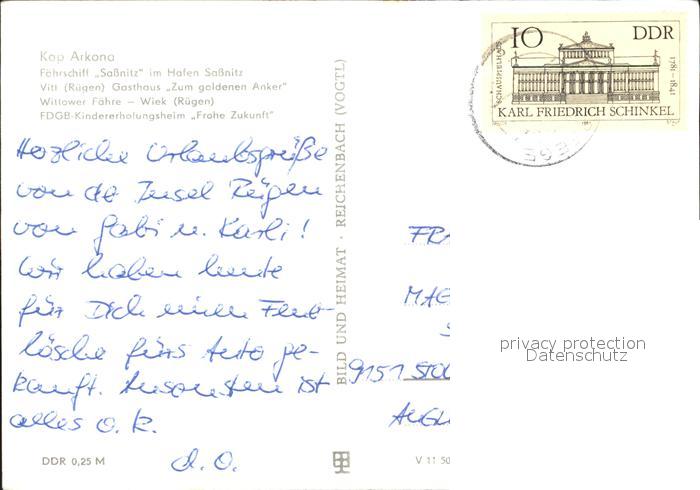 Kap Arkona
Fährschiff „Saßnitz" im Hafen Saßnitz
Vitt (Rügen) Gasthaus „Zum goldenen Anker"
Wittower Fähre – Wiek (Rügen)
FDGB-Kindererholungsheim „Frohe Zukunft"
Herzliche Urlaubsgrüße
von de Insel Rügen
von Gabi u. Karli!
Wir haben heute
für Dich einen Feuer-
löscher fürs Auto ge-
kauft. Ansonsten ist
alles o.k.
d.O.
DDR 0,25 M
BILD UND HEIMAT · REICHENBACH (VOGTL)
V 11 50
10 DDR
SCHAUSPIELHAUS
1781–1841
KARL FRIEDRICH SCHINKEL
FR
MAG
9151 STO
privacy protection
Datenschutz